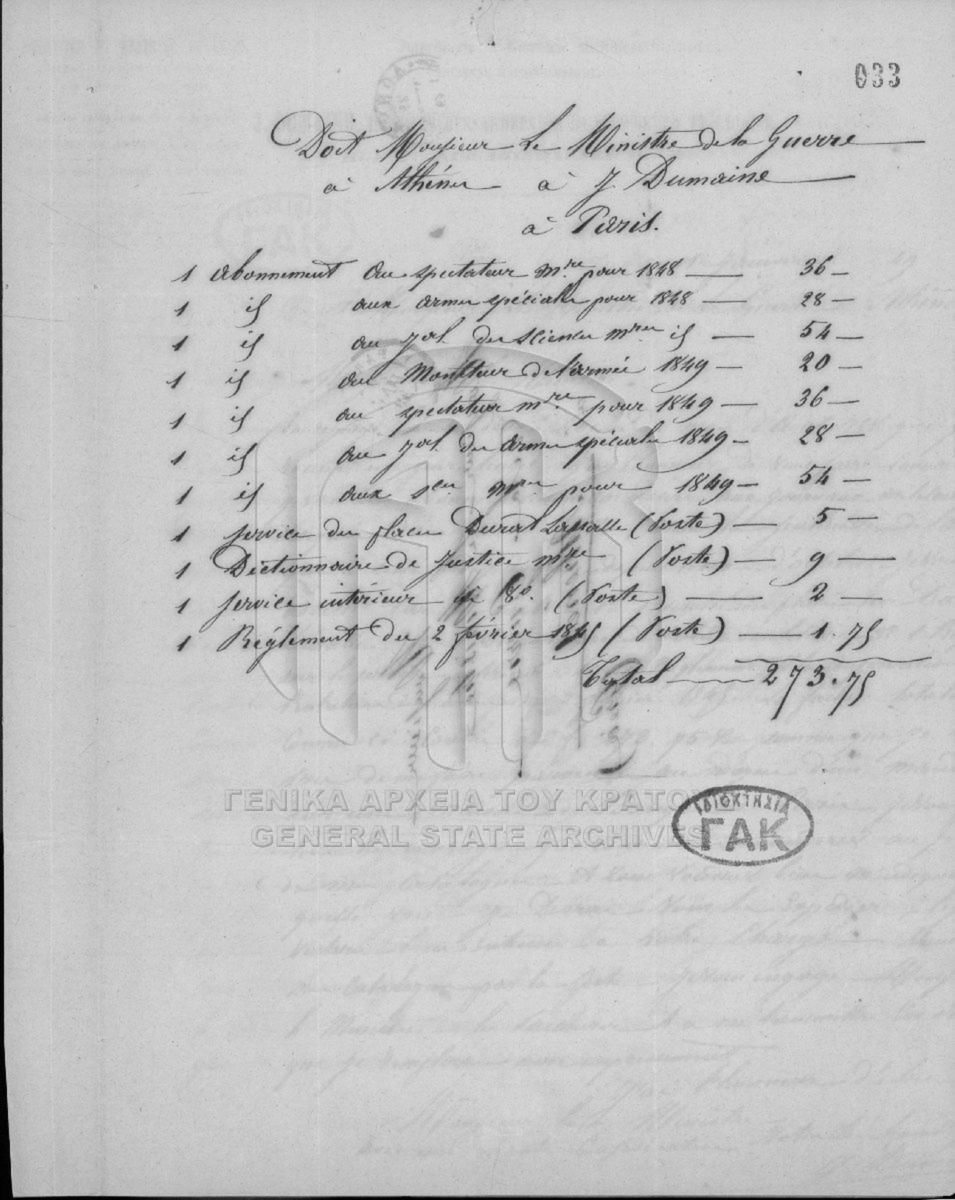 033
Doit Monsieur Le Ministre de la Guerre
à Athènes à J Dumaine
à Paris.
1 abonnement au spectateur mre pour 1848 — 36 —
1 id aux armes spéciales pour 1848 — 28 —
1 id au jal des sciences mres id — 54 —
1 id au Moniteur de l'armée 1849 — 20 —
1 id au spectateur mre pour 1849 — 36 —
1 id au jal des armes spéciales 1849 — 28 —
1 id aux sces mres pour 1849 — 54 —
1 service des places Durat Lassalle (Poste) — 5 —
1 Dictionnaire de Justice mre (Poste) — 9 —
1 service intérieur 8o. (Poste) — 2 —
1 Réglement du 2 février 1845 (Poste) — 1.75
Total — 273.75
ΓΕΝΙΚΑ ΑΡΧΕΙΑ ΤΟΥ ΚΡΑΤΟΥΣ
GENERAL STATE ARCHIVES
ΙΔΙΟΚΤΗΣΙΑ
ΓΑΚ